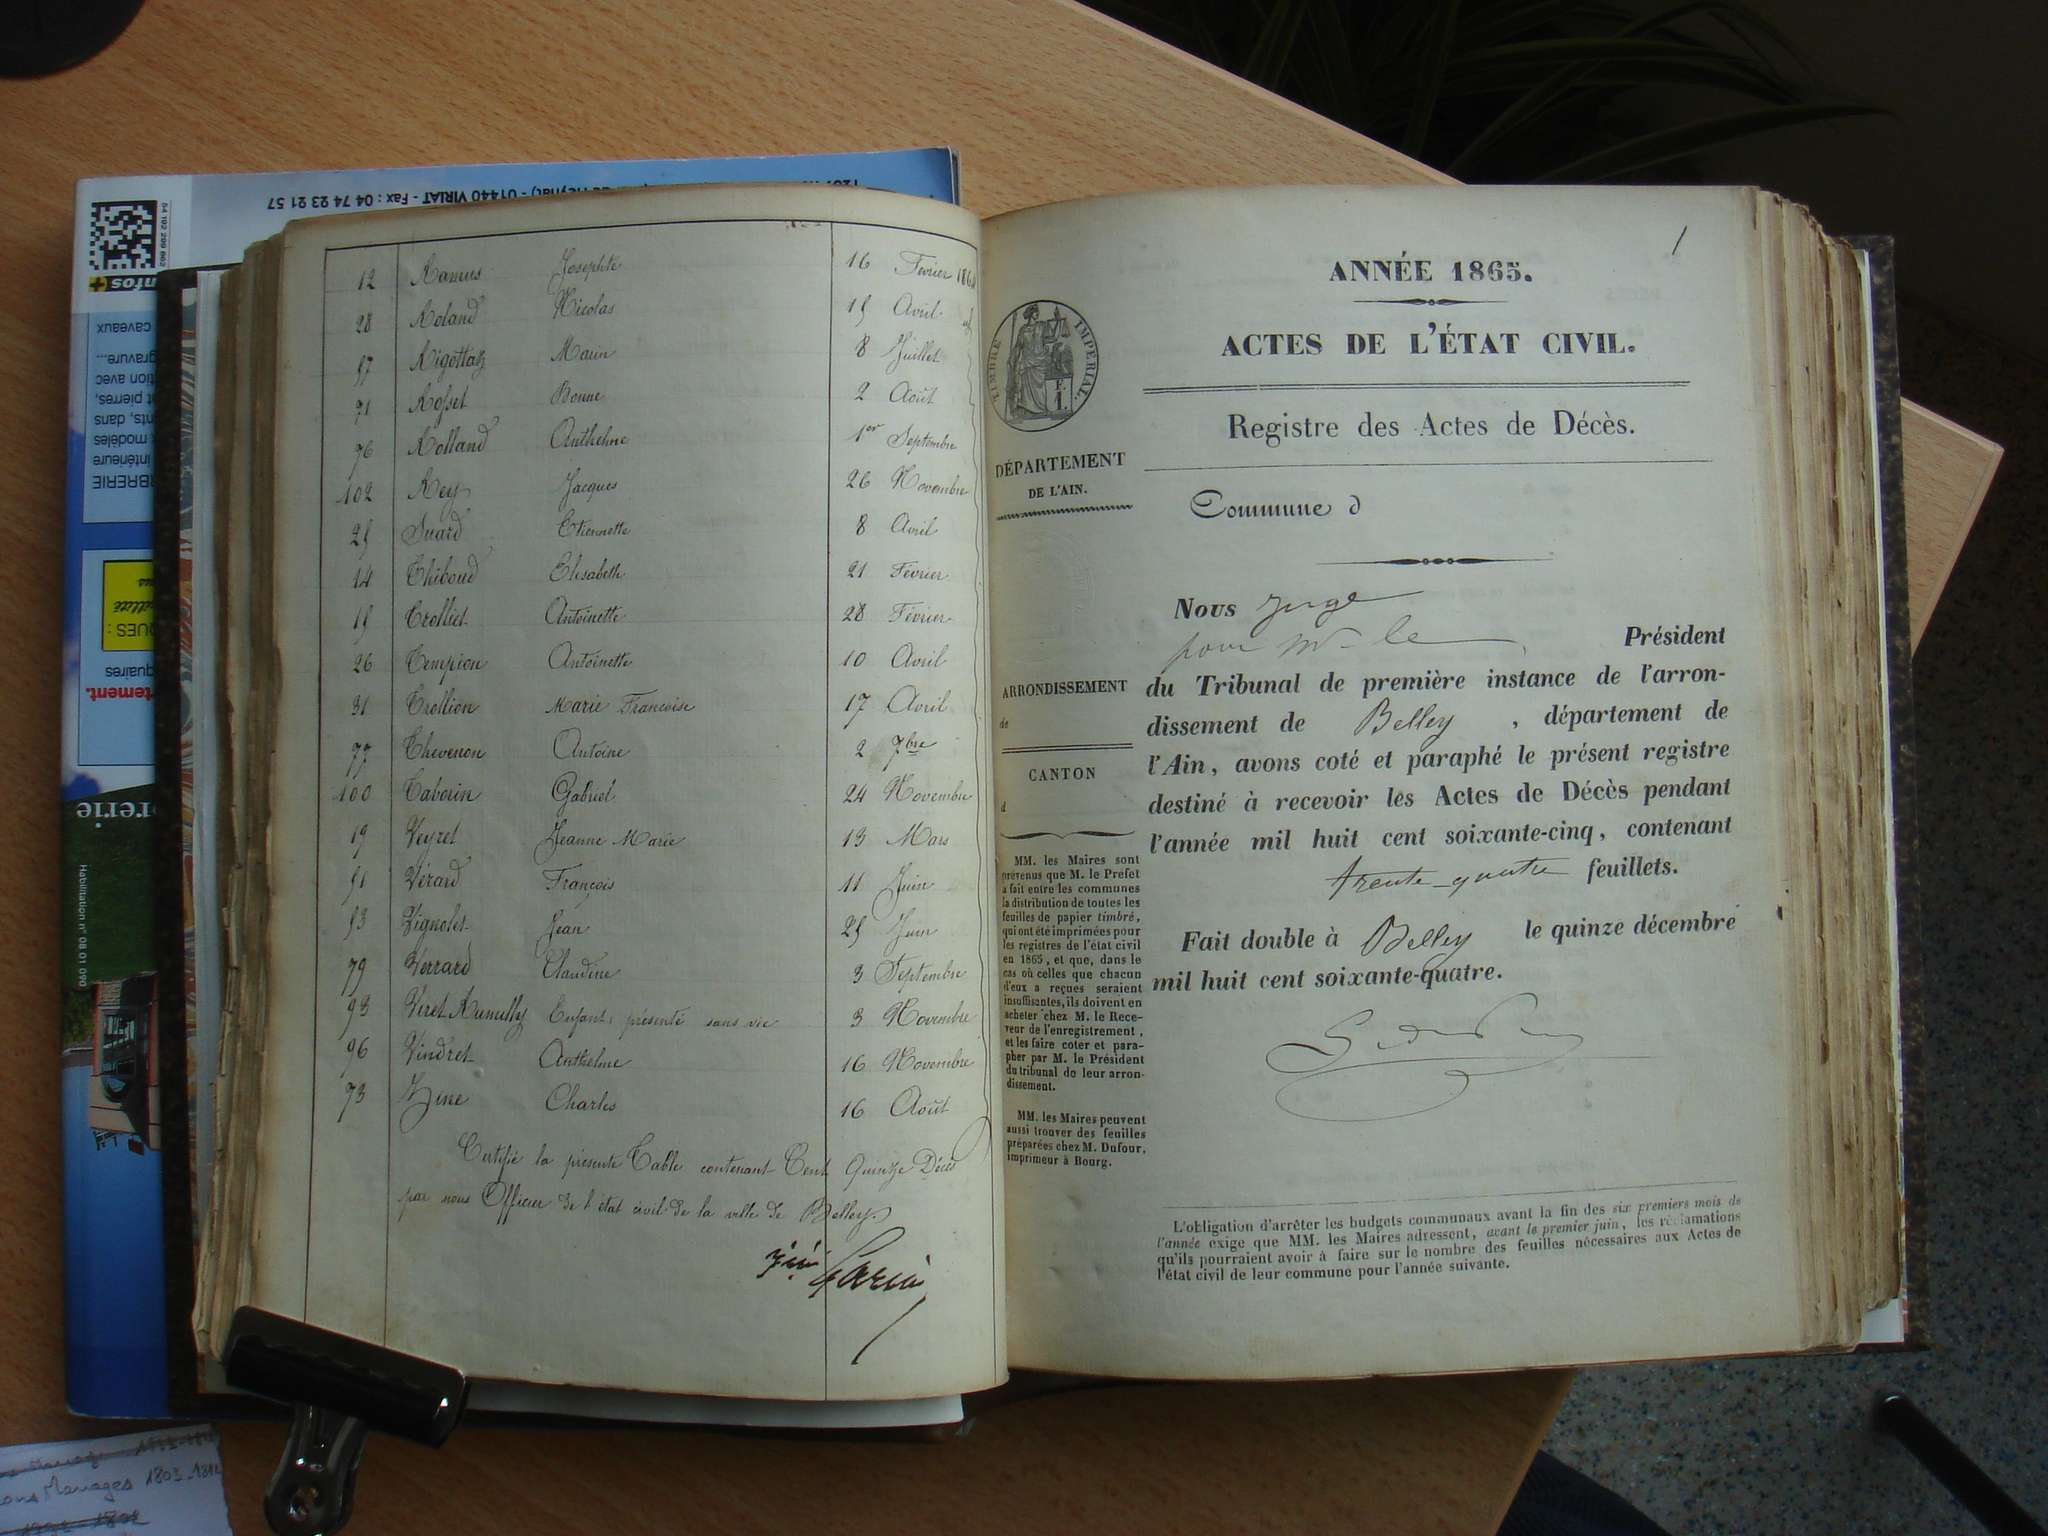 12 Ramus Josephte 16 Février 1864
28 Roland Nicolas 15 Avril
57 Rigottaz Marin 8 Juillet
71 Rosset Bonne 2 Août
76 Rolland Anthelme 1er Septembre
102 Rey Jacques 26 Novembre
25 Suard Etiennette 8 Avril
14 Thiboud Elisabeth 21 Février
15 Trolliet Antoinette 28 Février
26 Tempion Antoinette 10 Avril
31 Trollion Marie Françoise 17 Avril
77 Thevenon Antoine 2 7bre
100 Taborin Gabriel 24 Novembre
19 Veyret Jeanne Marie 13 Mars
51 Vérard François 11 Juin
53 Vignolet Jean 25 Juin
79 Verrard Claudine 3 Septembre
93 Viret Rumilly Enfant présenté sans vie 3 Novembre
96 Vindret Anthelme 16 Novembre
73 Zine Charles 16 Août
Certifié la présente Table contenant Cent Quinze Décès
par nous Officier de l'état civil de la ville de Belley
1
ANNÉE 1865.
ACTES DE L'ÉTAT CIVIL.
Registre des Actes de Décès.
TIMBRE IMPERIAL.
F.
1.
DÉPARTEMENT
DE L'AIN.
Commune d
ARRONDISSEMENT
de
CANTON
d
MM. les Maires sont
prévenus que M. le Préfet
a fait entre les communes
la distribution de toutes les
feuilles de papier timbré,
qui ont été imprimées pour
les registres de l'état civil
en 1865, et que, dans le
cas où celles que chacun
d'eux a reçues seraient
insuffisantes, ils doivent en
acheter chez M. le Rece-
veur de l'enregistrement,
et les faire coter et para-
pher par M. le Président
du tribunal de leur arron-
dissement.
MM. les Maires peuvent
aussi trouver des feuilles
préparées chez M. Dufour,
imprimeur à Bourg.
Nous Juge
pour Mr le Président
du Tribunal de première instance de l'arron-
dissement de Belley, département de
l'Ain, avons coté et paraphé le présent registre
destiné à recevoir les Actes de Décès pendant
l'année mil huit cent soixante-cinq, contenant
trente-quatre feuillets.
Fait double à Belley le quinze décembre
mil huit cent soixante-quatre.
L'obligation d'arrêter les budgets communaux avant la fin des six premiers mois de
l'année exige que MM. les Maires adressent, avant le premier juin, les réclamations
qu'ils pourraient avoir à faire sur le nombre des feuilles nécessaires aux Actes de
l'état civil de leur commune pour l'année suivante.
01440 VIRIAT - Fax : 04 74 23 21 57
54 192 209 602
infos +
caveaux
gravure...
tion avec
t pierres,
nts, dans
x modèles
intérieure
BRERIE
QUES :
quaires
rtement.
rerie
Habilitation n° 08 01 090
Mariages 1803-1812